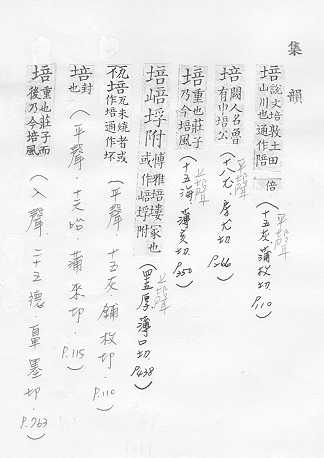 集韻
培 說文培敦土田山川也通作陪 倍 (平聲 十五灰 蒲枚切. P.110)
培 闕人名魯有小培公 (平聲 十八尤. 房尤切 P.266)
培 重也莊子而後乃今培風 (上聲 十五海 薄亥切 P.350)
培㟝垺附 博雅培塿冢也或作㟝垺附 (上聲 四十五厚. 薄口切 P.438)
㼧培 瓦未燒者或作培通作坏 (平聲 十五灰 鋪枚切. P.110)
培 封也 (平聲. 十六咍. 蒲來切. P.115)
培 重也莊子而後乃今培風 (入聲. 二十五德. 鼻墨切. P.763)